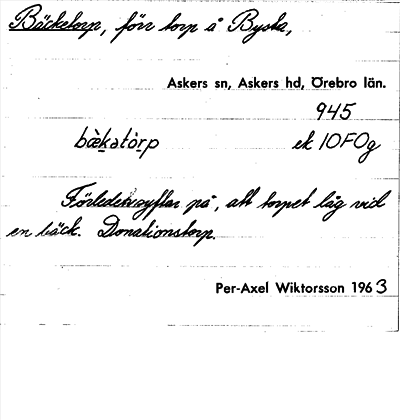 Bäcketorp, förr torp å Bysta,
Askers sn, Askers hd, Örebro län.
945
bækatòrp ek 10F0g
Förleden syftar på, att torpet låg vid
en bäck. Donationstorp.
Per-Axel Wiktorsson 1963